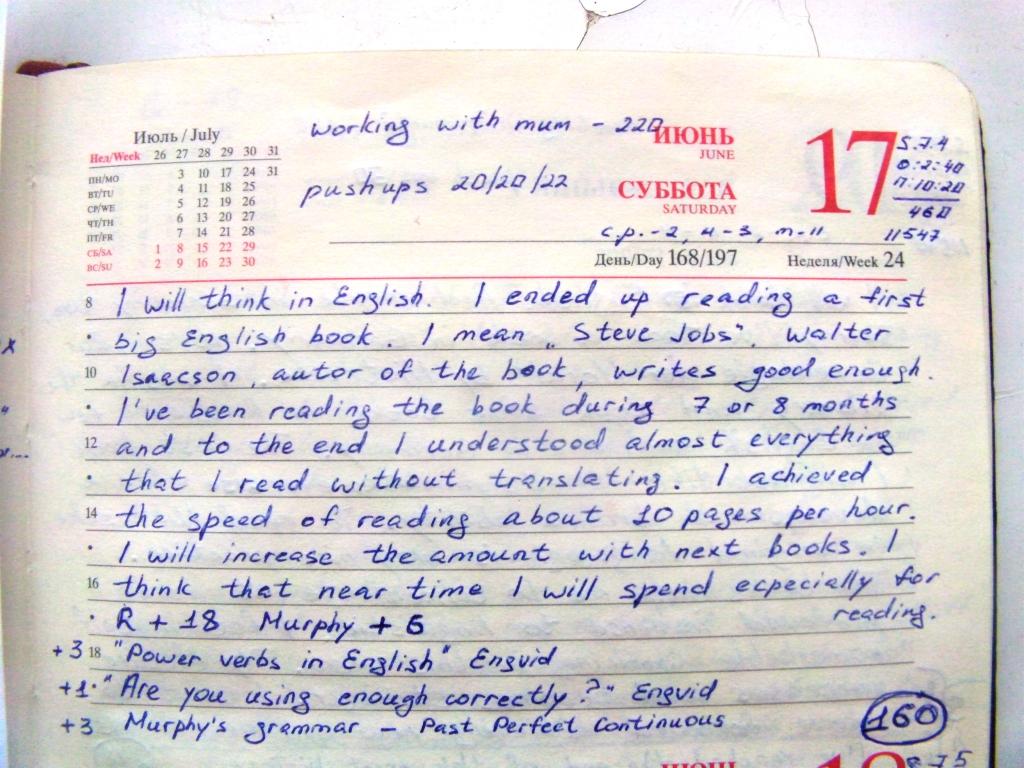 working with mum - 220
pushups 20/20/22
Июль / July
Нел/Week 26 27 28 29 30 31
ПН/MO 3 10 17 24 31
ВТ/TU 4 11 18 25
СР/WE 5 12 19 26
ЧТ/TH 6 13 20 27
ПТ/FR 7 14 21 28
СБ/SA 1 8 15 22 29
ВС/SU 2 9 16 23 30
ИЮНЬ
JUNE
СУББОТА
SATURDAY
17
5.7.4
0:2:40
П:10:20
460
11547
с.р.-2, н-3, т-11
День/Day 168/197
Неделя/Week 24
8 I will think in English. I ended up reading a first
big English book. I mean „Steve Jobs". Walter
10 Isaacson, autor of the book, writes good enough.
I've been reading the book during 7 or 8 months
12 and to the end I understood almost everything
that I read without translating. I achieved
14 the speed of reading about 10 pages per hour.
I will increase the amount with next books. I
16 think that near time I will spend ecpecially for
reading.
R + 18 Murphy + 6
+3 18 "Power verbs in English" Engvid
+1 "Are you using enough correctly?" Engvid
+3 Murphy's grammar - Past Perfect Continuous
160
875